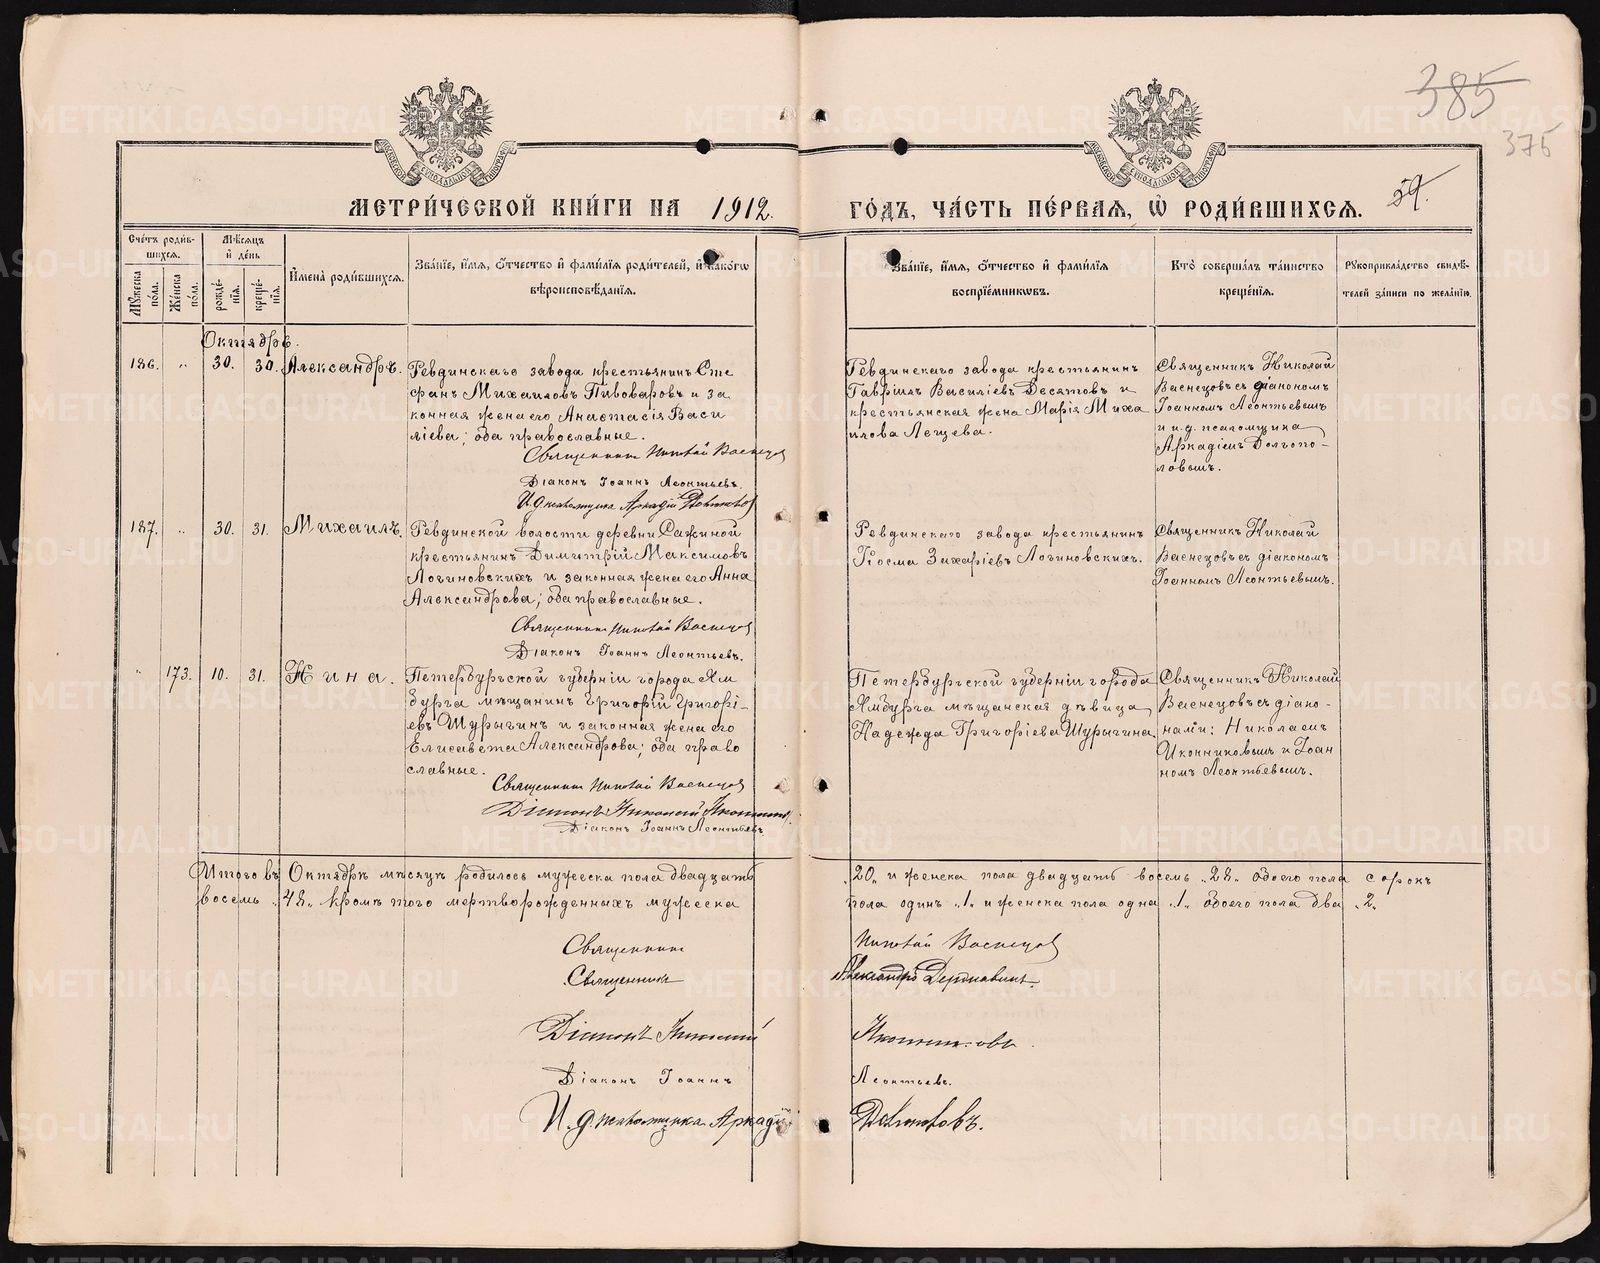 385
375
59.
МЕТРИ́ЧЕСКОЙ КНИ́ГИ НА 1912. ГО́ДЪ, ЧА́СТЬ ПЕ́РВАЯ, Ѡ РОДИ́ВШИХСЯ.
Сче́тъ роди́вшихся.
Му́жеска по́ла.
Же́нска по́ла.
Мѣ́сяцъ и де́нь
рожде́нія.
креще́нія.
И́мена роди́вшихся.
Зва́нїе, и́мя, ѻ҆́тчество и҆ фами́лїя роди́телей, и҆ како́гѡ
вѣроисповѣ́данїя.
Зва́нїе, и́мя, ѻ҆́тчество и҆ фами́лїя
воспрїе́мникѡвъ.
Кто̀ соверша́лъ та́инство
креще́нїя.
Рꙋкоприкла́дство свидѣ́-
телей за́писи по жела́нїю.
Октябрь.
186. „ 30. 30. Александръ.
Ревдинскаго завода крестьянинъ Сте
фанъ Михаиловъ Пивоваровъ и за
конная жена его Анастасія Васи
ліева; оба православные.
Священникъ Николай Васнецовъ
Діаконъ Іоаннъ Леонтьевъ.
И. д. псаломщика Аркадій Долгополовъ
Ревдинскаго завода крестьянинъ
Гавріилъ Василіевъ Десятовъ и
крестьянская жена Марія Миха
илова Лещева.
Священникъ Николай
Васнецовъ съ діакономъ
Іоанномъ Леонтьевымъ
и и.д. псаломщика
Аркадіемъ Долгопо-
ловымъ.
187. „ 30. 31. Михаилъ.
Ревдинской волости деревни Сажиной
крестьянинъ Димитрій Максимовъ
Логиновскихъ и законная жена его Анна
Александрова; оба православные.
Священникъ Николай Васнецовъ
Діаконъ Іоаннъ Леонтьевъ.
Ревдинскаго завода крестьянинъ
Косма Захаріевъ Логиновскихъ.
Священникъ Николай
Васнецовъ съ діакономъ
Іоанномъ Леонтьевымъ.
„ 173. 10. 31. Нина.
Петербургской губерніи города Ям
бурга мѣщанинъ Григорій Григорі-
евъ Шурыгинъ и законная жена его
Елисавета Александрова; оба право
славные.
Священникъ Николай Васнецовъ
Діаконъ Николай Иконниковъ
Діаконъ Іоаннъ Леонтьевъ
Петербургской губерніи города
Ямбурга мѣщанская дѣвица
Надежда Григоріева Шурыгина.
Священникъ Николай
Васнецовъ съ діако-
нами: Николаемъ
Иконниковымъ и Іоан
номъ Леонтьевымъ.
Итого въ Октябрѣ мѣсяцѣ родилось мужеска пола двадцать „20„ и женска пола двадцать восемь „28„ обоего пола сорокъ
восемь „48„ кромѣ того мертворожденныхъ мужеска пола одинъ „1„ и женска пола одна „1„ обоего пола два „2„
Священникъ Николай Васнецовъ
Священникъ Александръ Державинъ.
Діаконъ Николай Иконниковъ.
Діаконъ Іоаннъ Леонтьевъ.
И. д. псаломщика Аркадій Долгополовъ.
METRIKI.GASO-URAL.RU